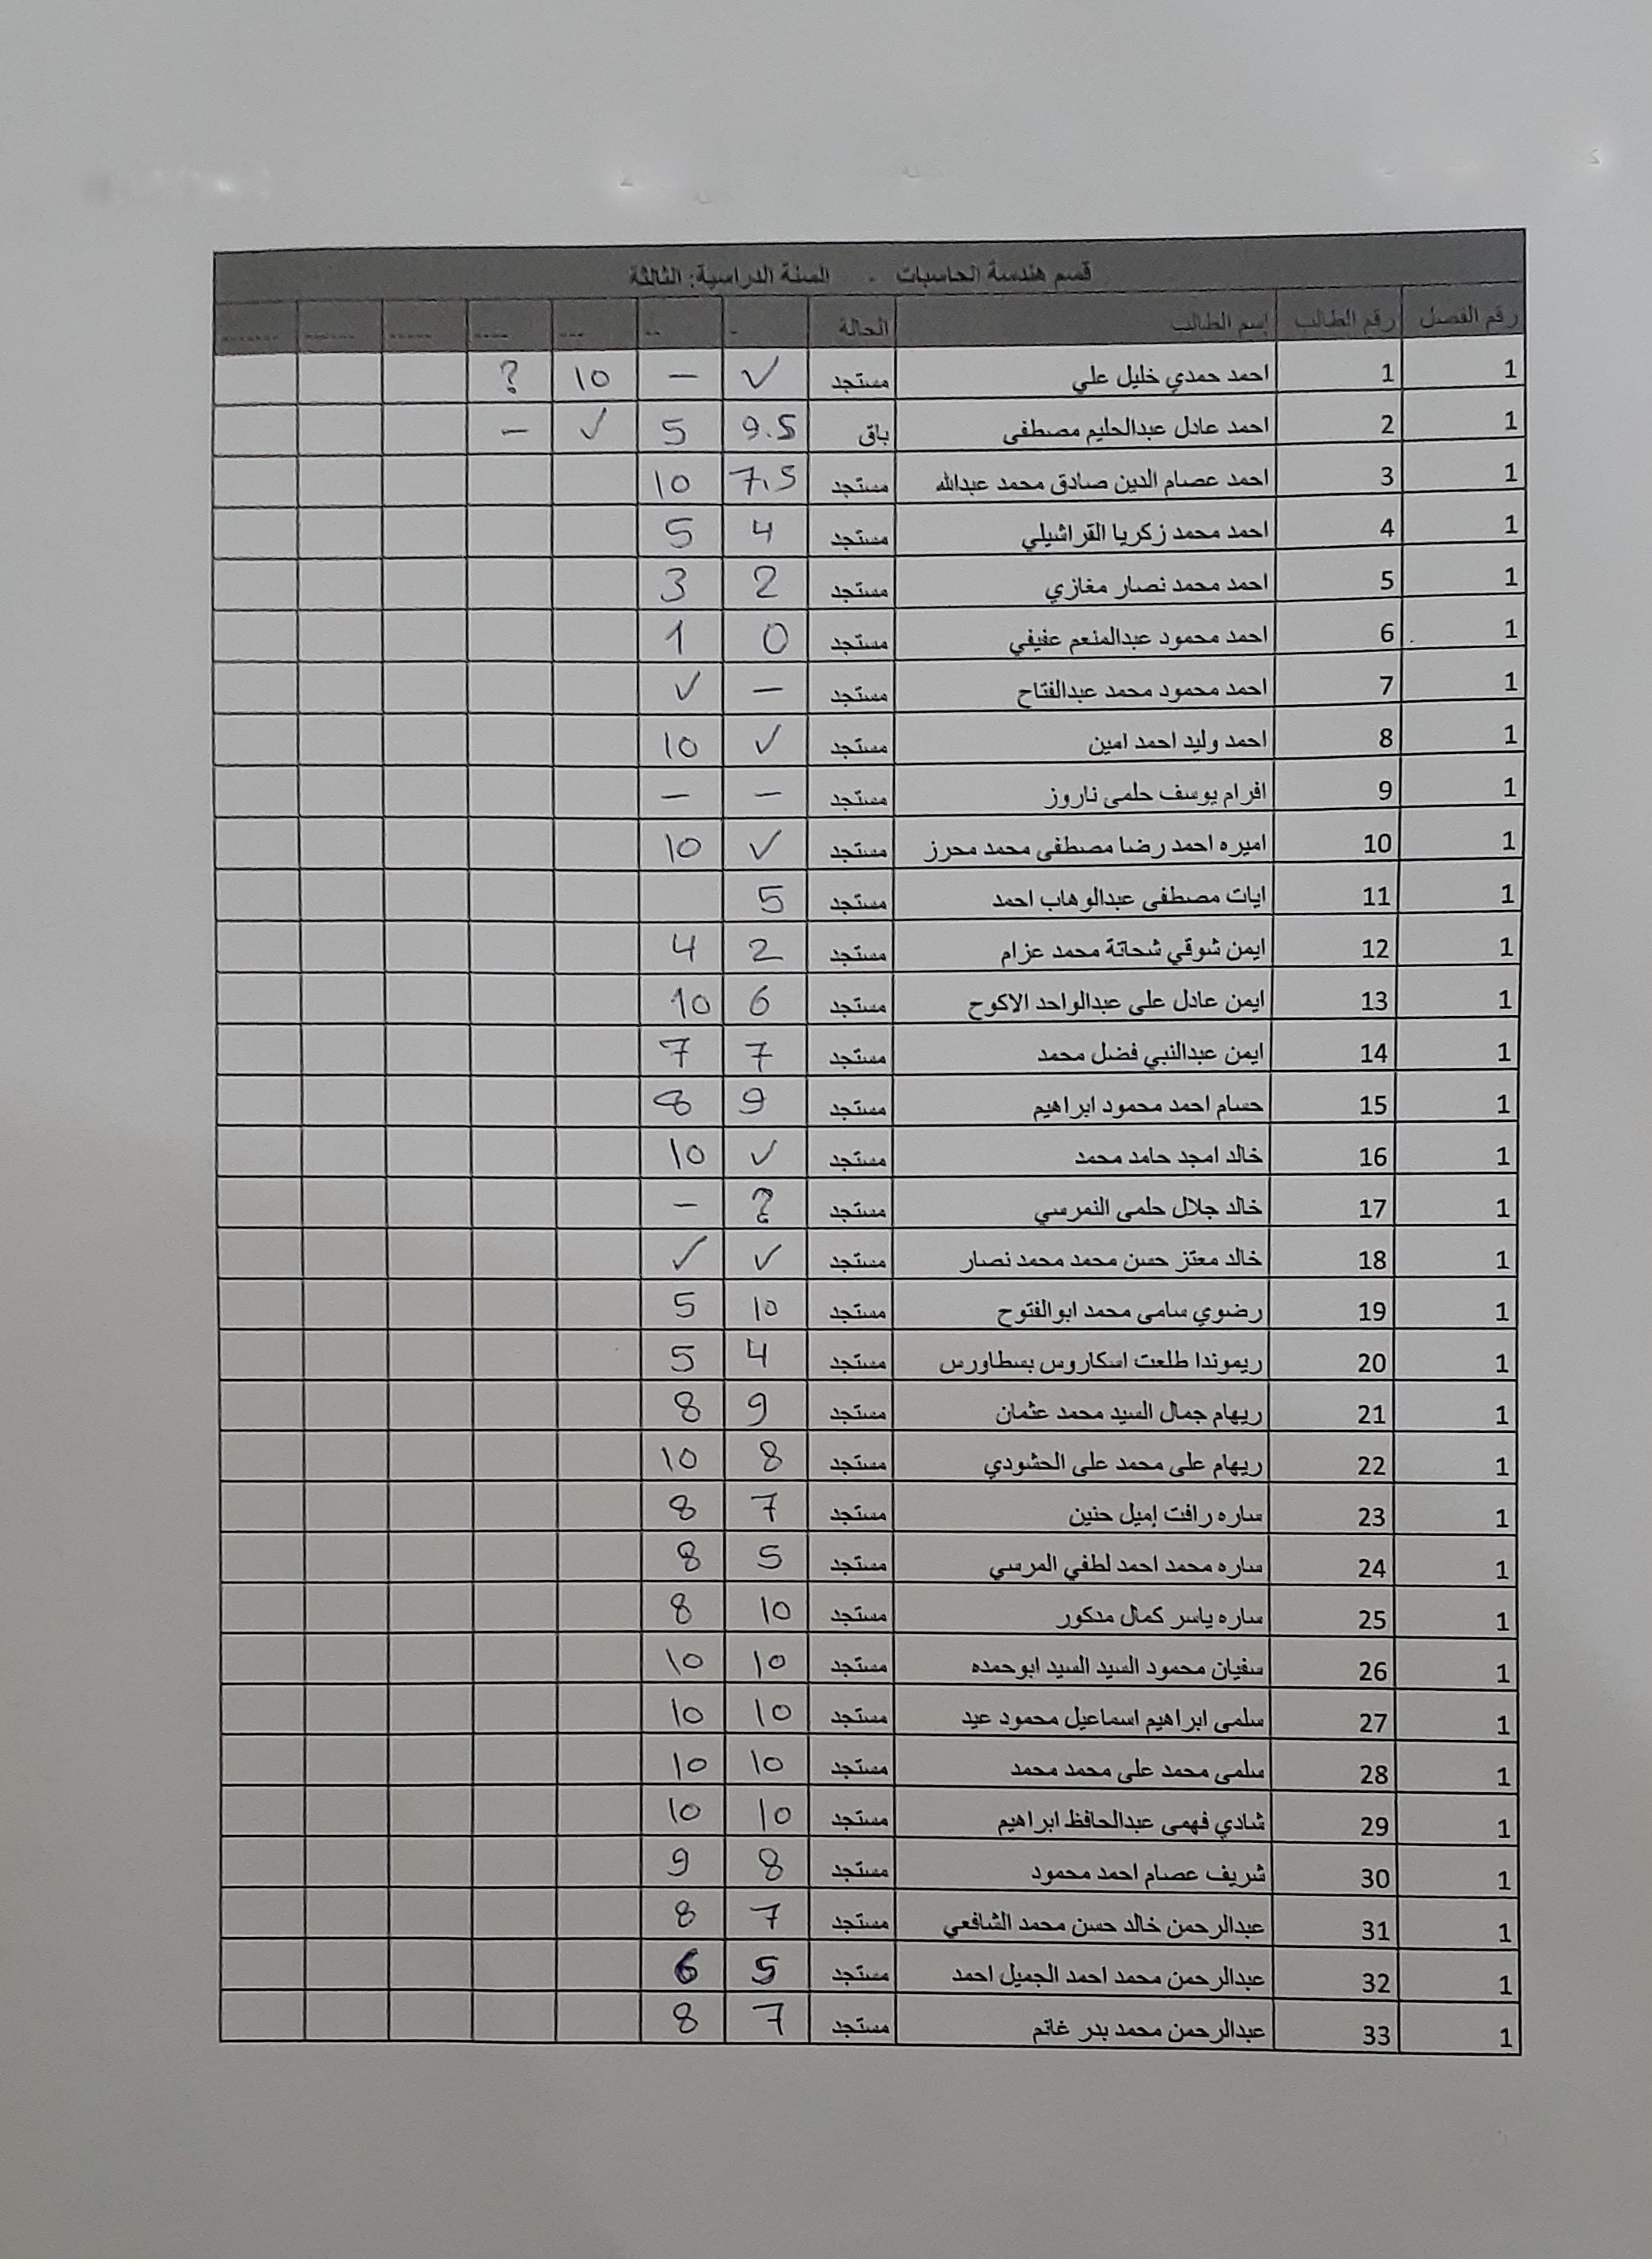 قسم هندسة الحاسبات - السنة الدراسية: الثالثة
رقم الفصل رقم الطالب إسم الطالب الحالة - -- --- ---- ----- ------ -------
1 1 احمد حمدي خليل علي مستجد ✓ – 10 ?
1 2 احمد عادل عبدالحليم مصطفى باق 9.5 5 ✓ –
1 3 احمد عصام الدين صادق محمد عبدالله مستجد 7.5 10
1 4 احمد محمد زكريا القراشيلي مستجد 4 5
1 5 احمد محمد نصار مغازي مستجد 2 3
1 6 احمد محمود عبدالمنعم عفيفي مستجد 0 1
1 7 احمد محمود محمد عبدالفتاح مستجد – ✓
1 8 احمد وليد احمد امين مستجد ✓ 10
1 9 افرام يوسف حلمى ناروز مستجد – –
1 10 اميره احمد رضا مصطفى محمد محرز مستجد ✓ 10
1 11 ايات مصطفى عبدالوهاب احمد مستجد 5
1 12 ايمن شوقي شحاتة محمد عزام مستجد 2 4
1 13 ايمن عادل على عبدالواحد الاكوح مستجد 6 10
1 14 ايمن عبدالنبي فضل محمد مستجد 7 7
1 15 حسام احمد محمود ابراهيم مستجد 9 8
1 16 خالد امجد حامد محمد مستجد ✓ 10
1 17 خالد جلال حلمى النمرسي مستجد ? –
1 18 خالد معتز حسن محمد محمد نصار مستجد ✓ ✓
1 19 رضوي سامى محمد ابوالفتوح مستجد 10 5
1 20 ريموندا طلعت اسكاروس بسطاورس مستجد 4 5
1 21 ريهام جمال السيد محمد عثمان مستجد 9 8
1 22 ريهام على محمد على الحشودي مستجد 8 10
1 23 ساره رافت إميل حنين مستجد 7 8
1 24 ساره محمد احمد لطفي المرسي مستجد 5 8
1 25 ساره ياسر كمال مدكور مستجد 10 8
1 26 سفيان محمود السيد السيد ابوحمده مستجد 10 10
1 27 سلمى ابراهيم اسماعيل محمود عيد مستجد 10 10
1 28 سلمى محمد على محمد محمد مستجد 10 10
1 29 شادي فهمى عبدالحافظ ابراهيم مستجد 10 10
1 30 شريف عصام احمد محمود مستجد 8 9
1 31 عبدالرحمن خالد حسن محمد الشافعي مستجد 7 8
1 32 عبدالرحمن محمد احمد الجميل احمد مستجد 5 6
1 33 عبدالرحمن محمد بدر غانم مستجد 7 8